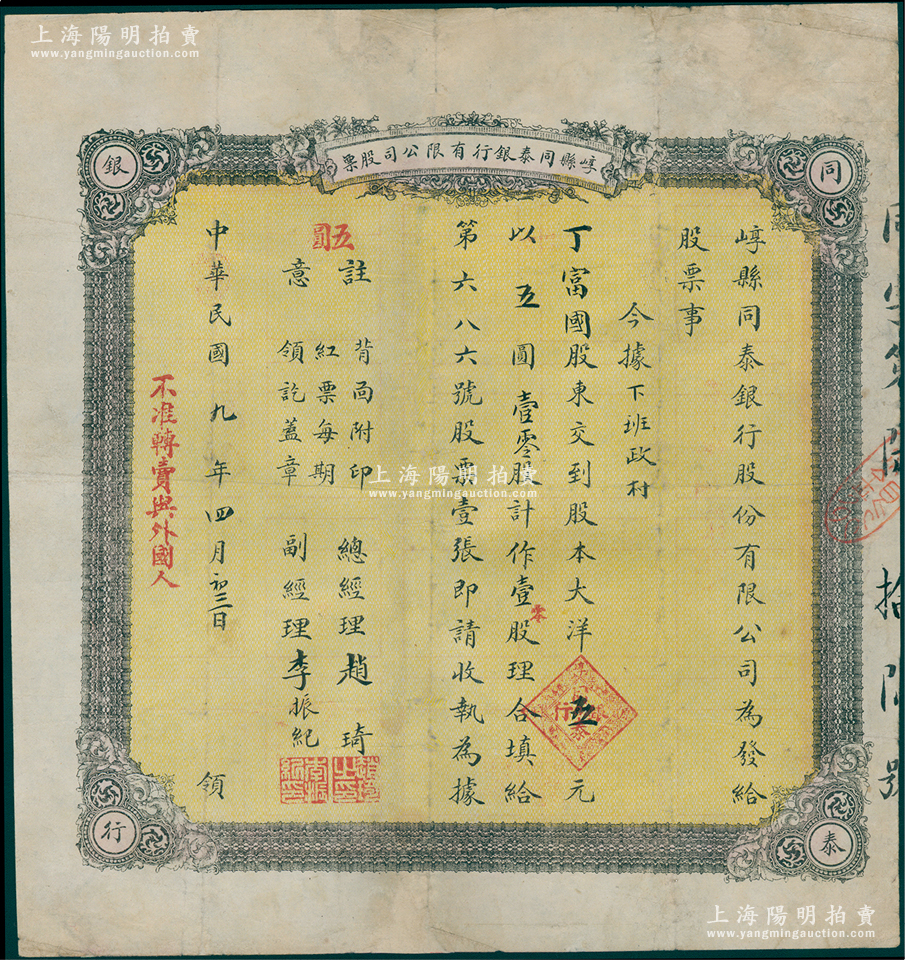 上海陽明拍賣
www.yangmingauction.com
上海陽明拍賣
www.yangmingauction.com
崞縣同泰銀行有限公司股票
同
泰
銀
行
崞縣同泰銀行股份有限公司為發給
股票事
今據下班政村
丁富國股東交到股本大洋五元
以五圓壹零股計作壹零股理合填給
第六八六號股票壹張即請收執為據
五圓
註意
背面附印
紅票每期
領訖蓋章
總經理趙琦
副經理李振紀
中華民國九年四月初三日
領
不准轉賣與外國人
上海陽明拍賣
www.yangmingauction.com
上海陽明拍賣
www.yangmingauction.com